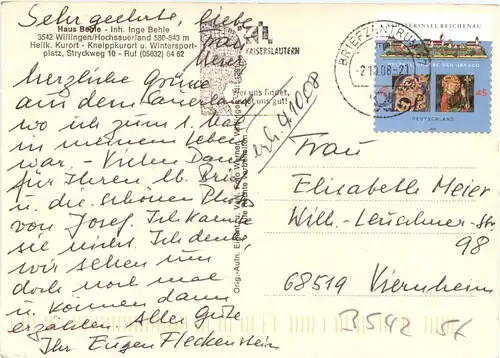 Sehr geehrte, liebe
Frau Meier
Haus Behle - Inh. Inge Behle
3542 Willingen/Hochsauerland 580-843 m
Heilk. Kurort - Kneippkurort u. Wintersport-
platz, Stryckweg 10 - Ruf (05632) 64 62
herzliche Grüße
aus dem Sauerland
wo ich zum 1. Mal
in meinem Leben
war. - Vielen Dank
für Ihren lb. Brief
u. die schönen
von Josef. Ich kannte
sie nicht. Ich denke
wir sehen uns
doch noch mal
u. können dann
erzählen. Alles Gute
Ihr Eugen Fleckenstein
KAISERSLAUTERN
Wer uns findet,
uns gut!
erh. 4.10.08
BRIEFZENTRUM
-2.10.08-21
KLOSTERINSEL REICHENAU
45
DEUTSCHLAND
Frau
Elisabeth Meier
Wilh.-Leuschner-Str
98
68519 Viernheim
B542 56